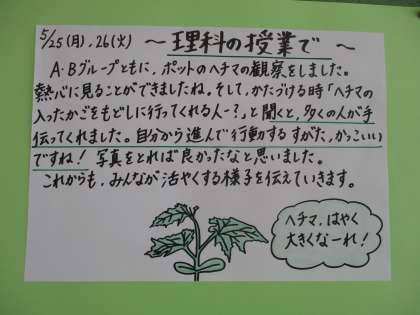 5/25(月)、26(火) ～理科の授業で～
A・Bグループともに、ポットのヘチマの観察をしました。
熱心に見ることができましたね。そして、かたづける時「ヘチマの
入ったかごをもどしに行ってくれる人ー？」と聞くと、多くの人が手
伝ってくれました。自分から進んで行動するすがた、かっこいい
ですね！写真をとれば良かったなと思いました。
これからも、みんなが活やくする様子を伝えていきます。
ヘチマ、はやく
大きくなーれ！